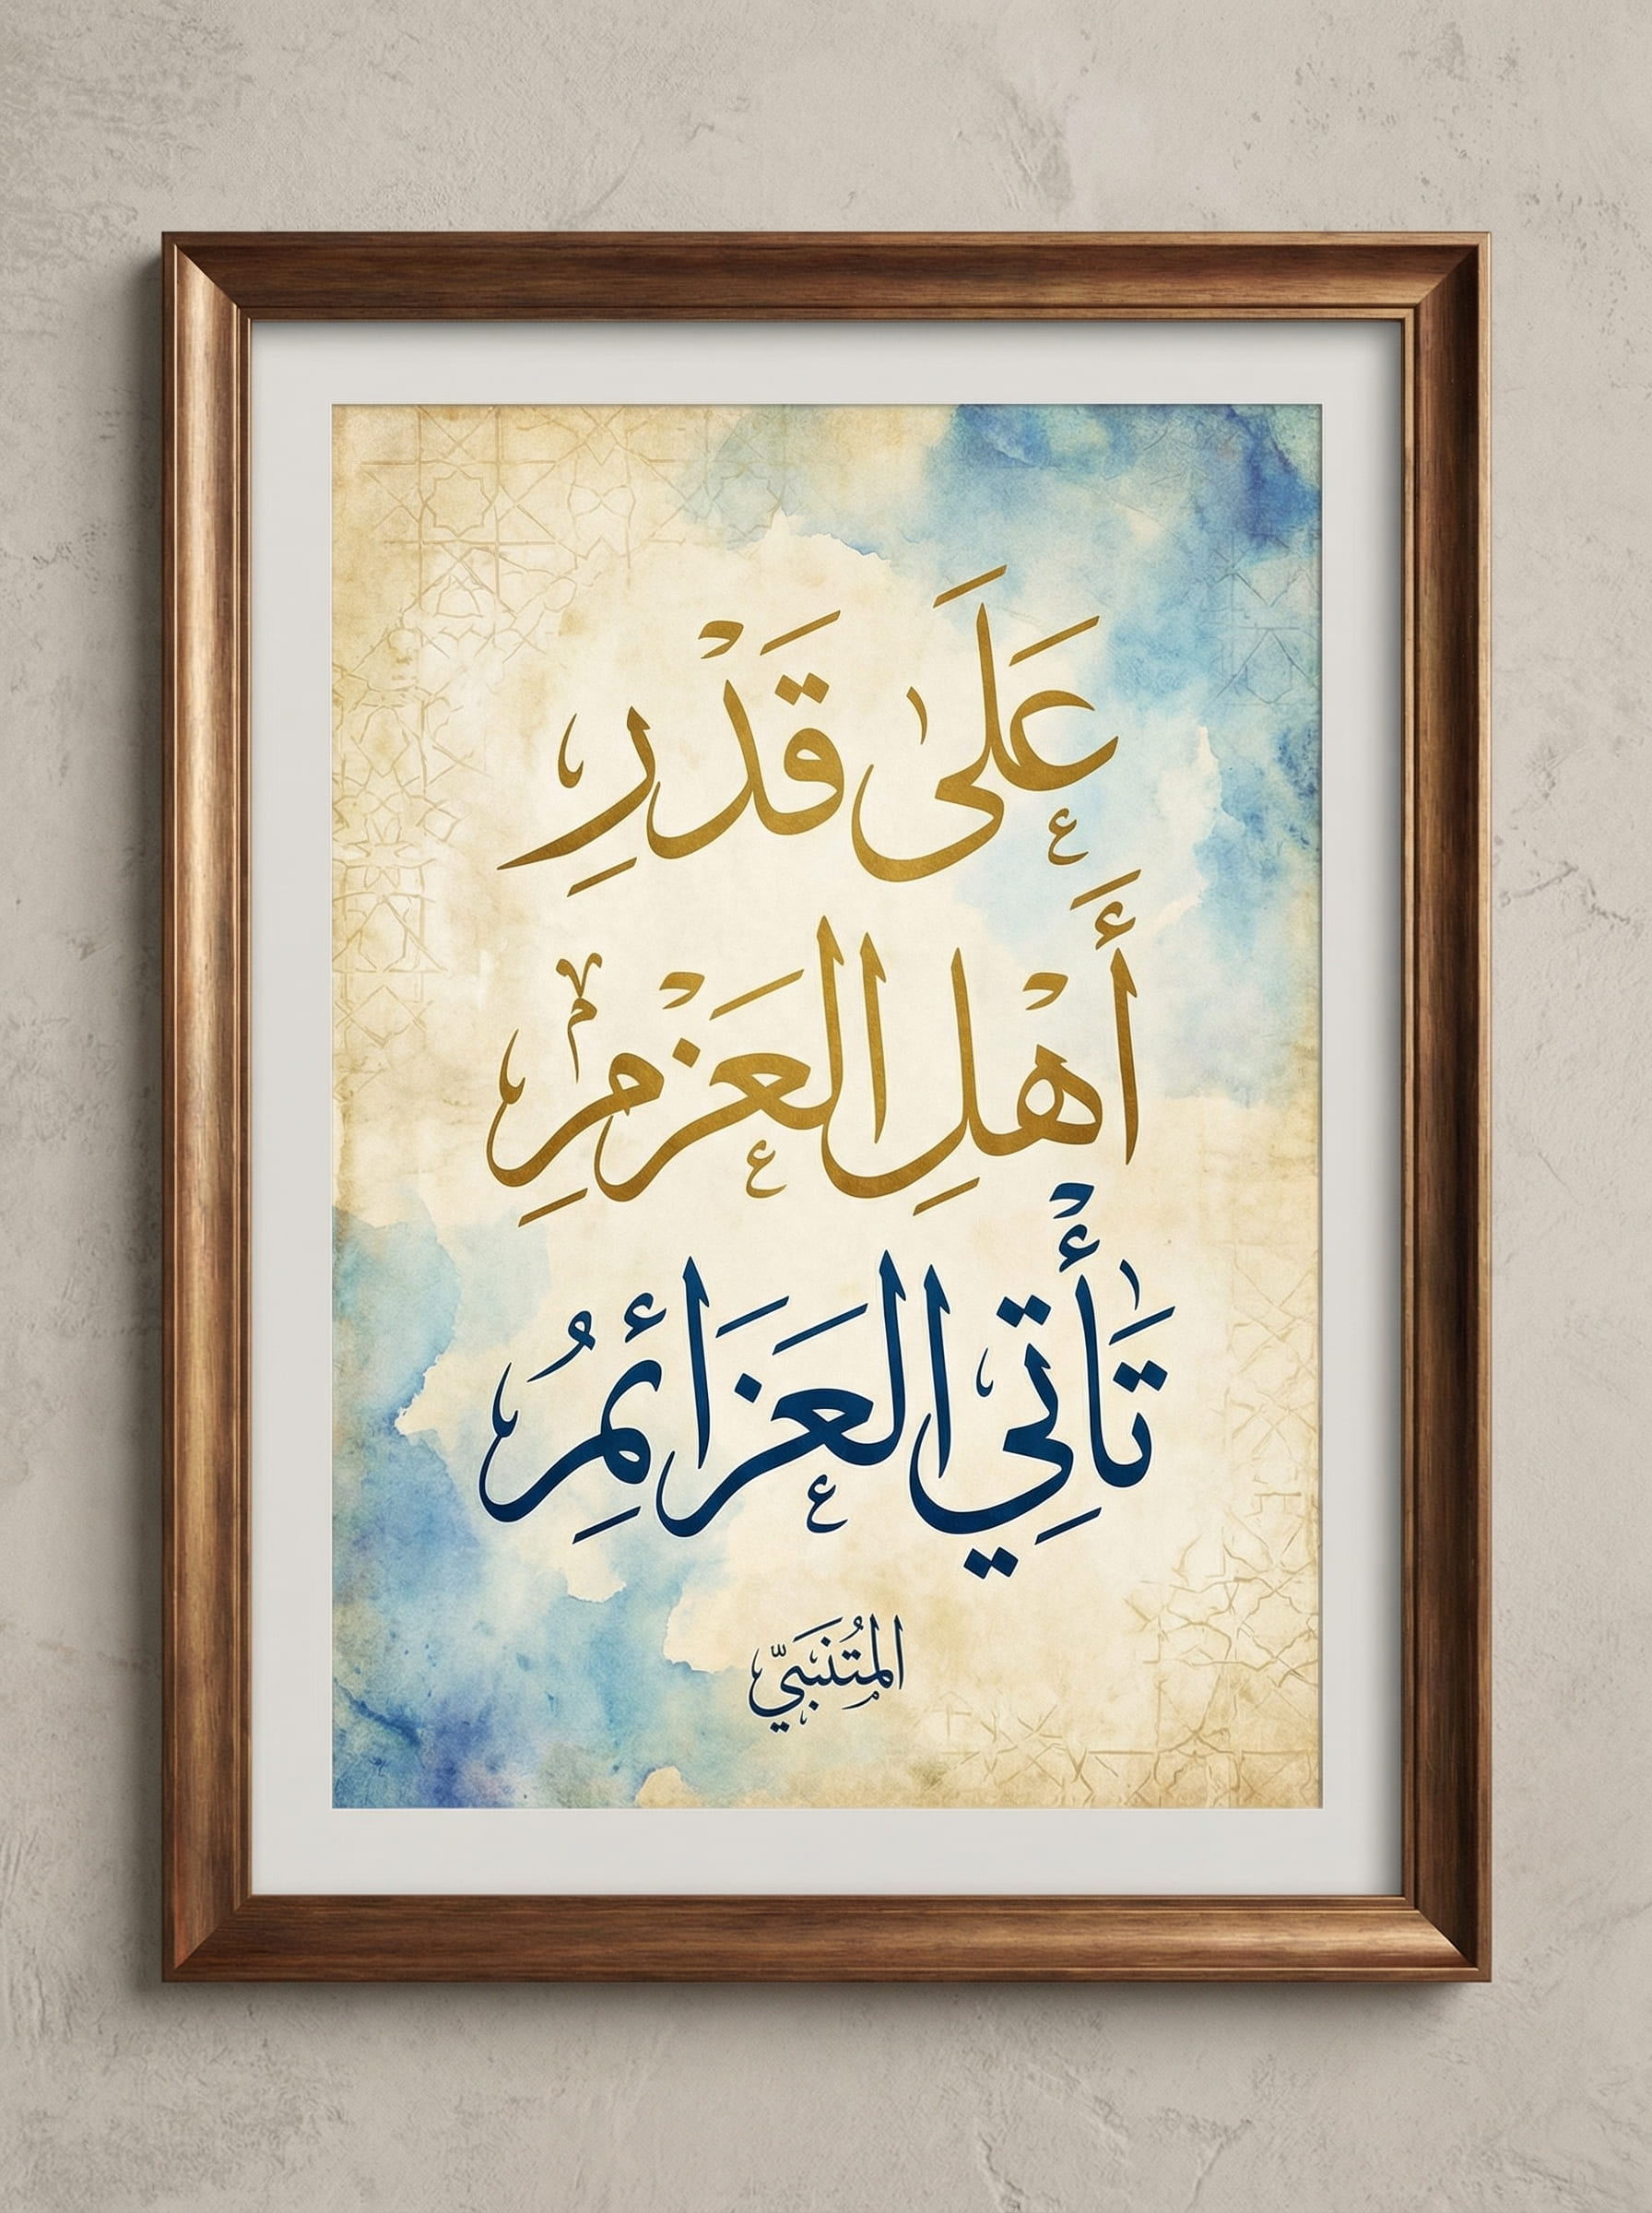 عَلَى قَدْرِ
أَهْلِ الْعَزْمِ
تَأْتِي الْعَزَائِمُ
الْمُتَنَبِّيّ